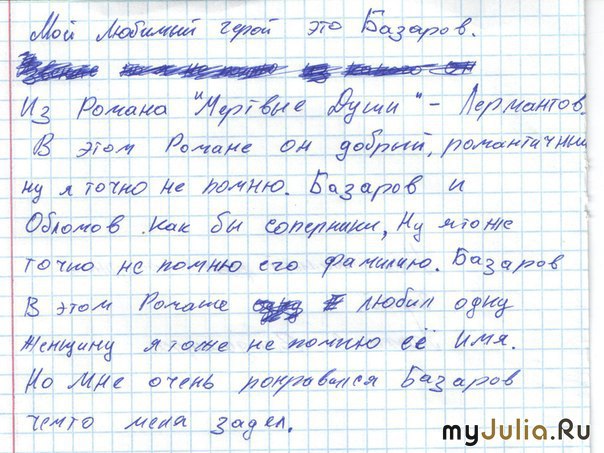 Мой любимый герой это Базаров.
Из Романа "Мертвые Души" - Лермантов.
В этом Романе он добрый, романтичный
ну я точно не помню. Базаров и
Обломов как бы соперники, Ну я тоже
точно не помню его фамилию. Базаров
В этом Романе любил одну
Женщину я тоже не помню её имя.
Но мне очень понравился Базаров
чемто меня задел.
myJulia.Ru